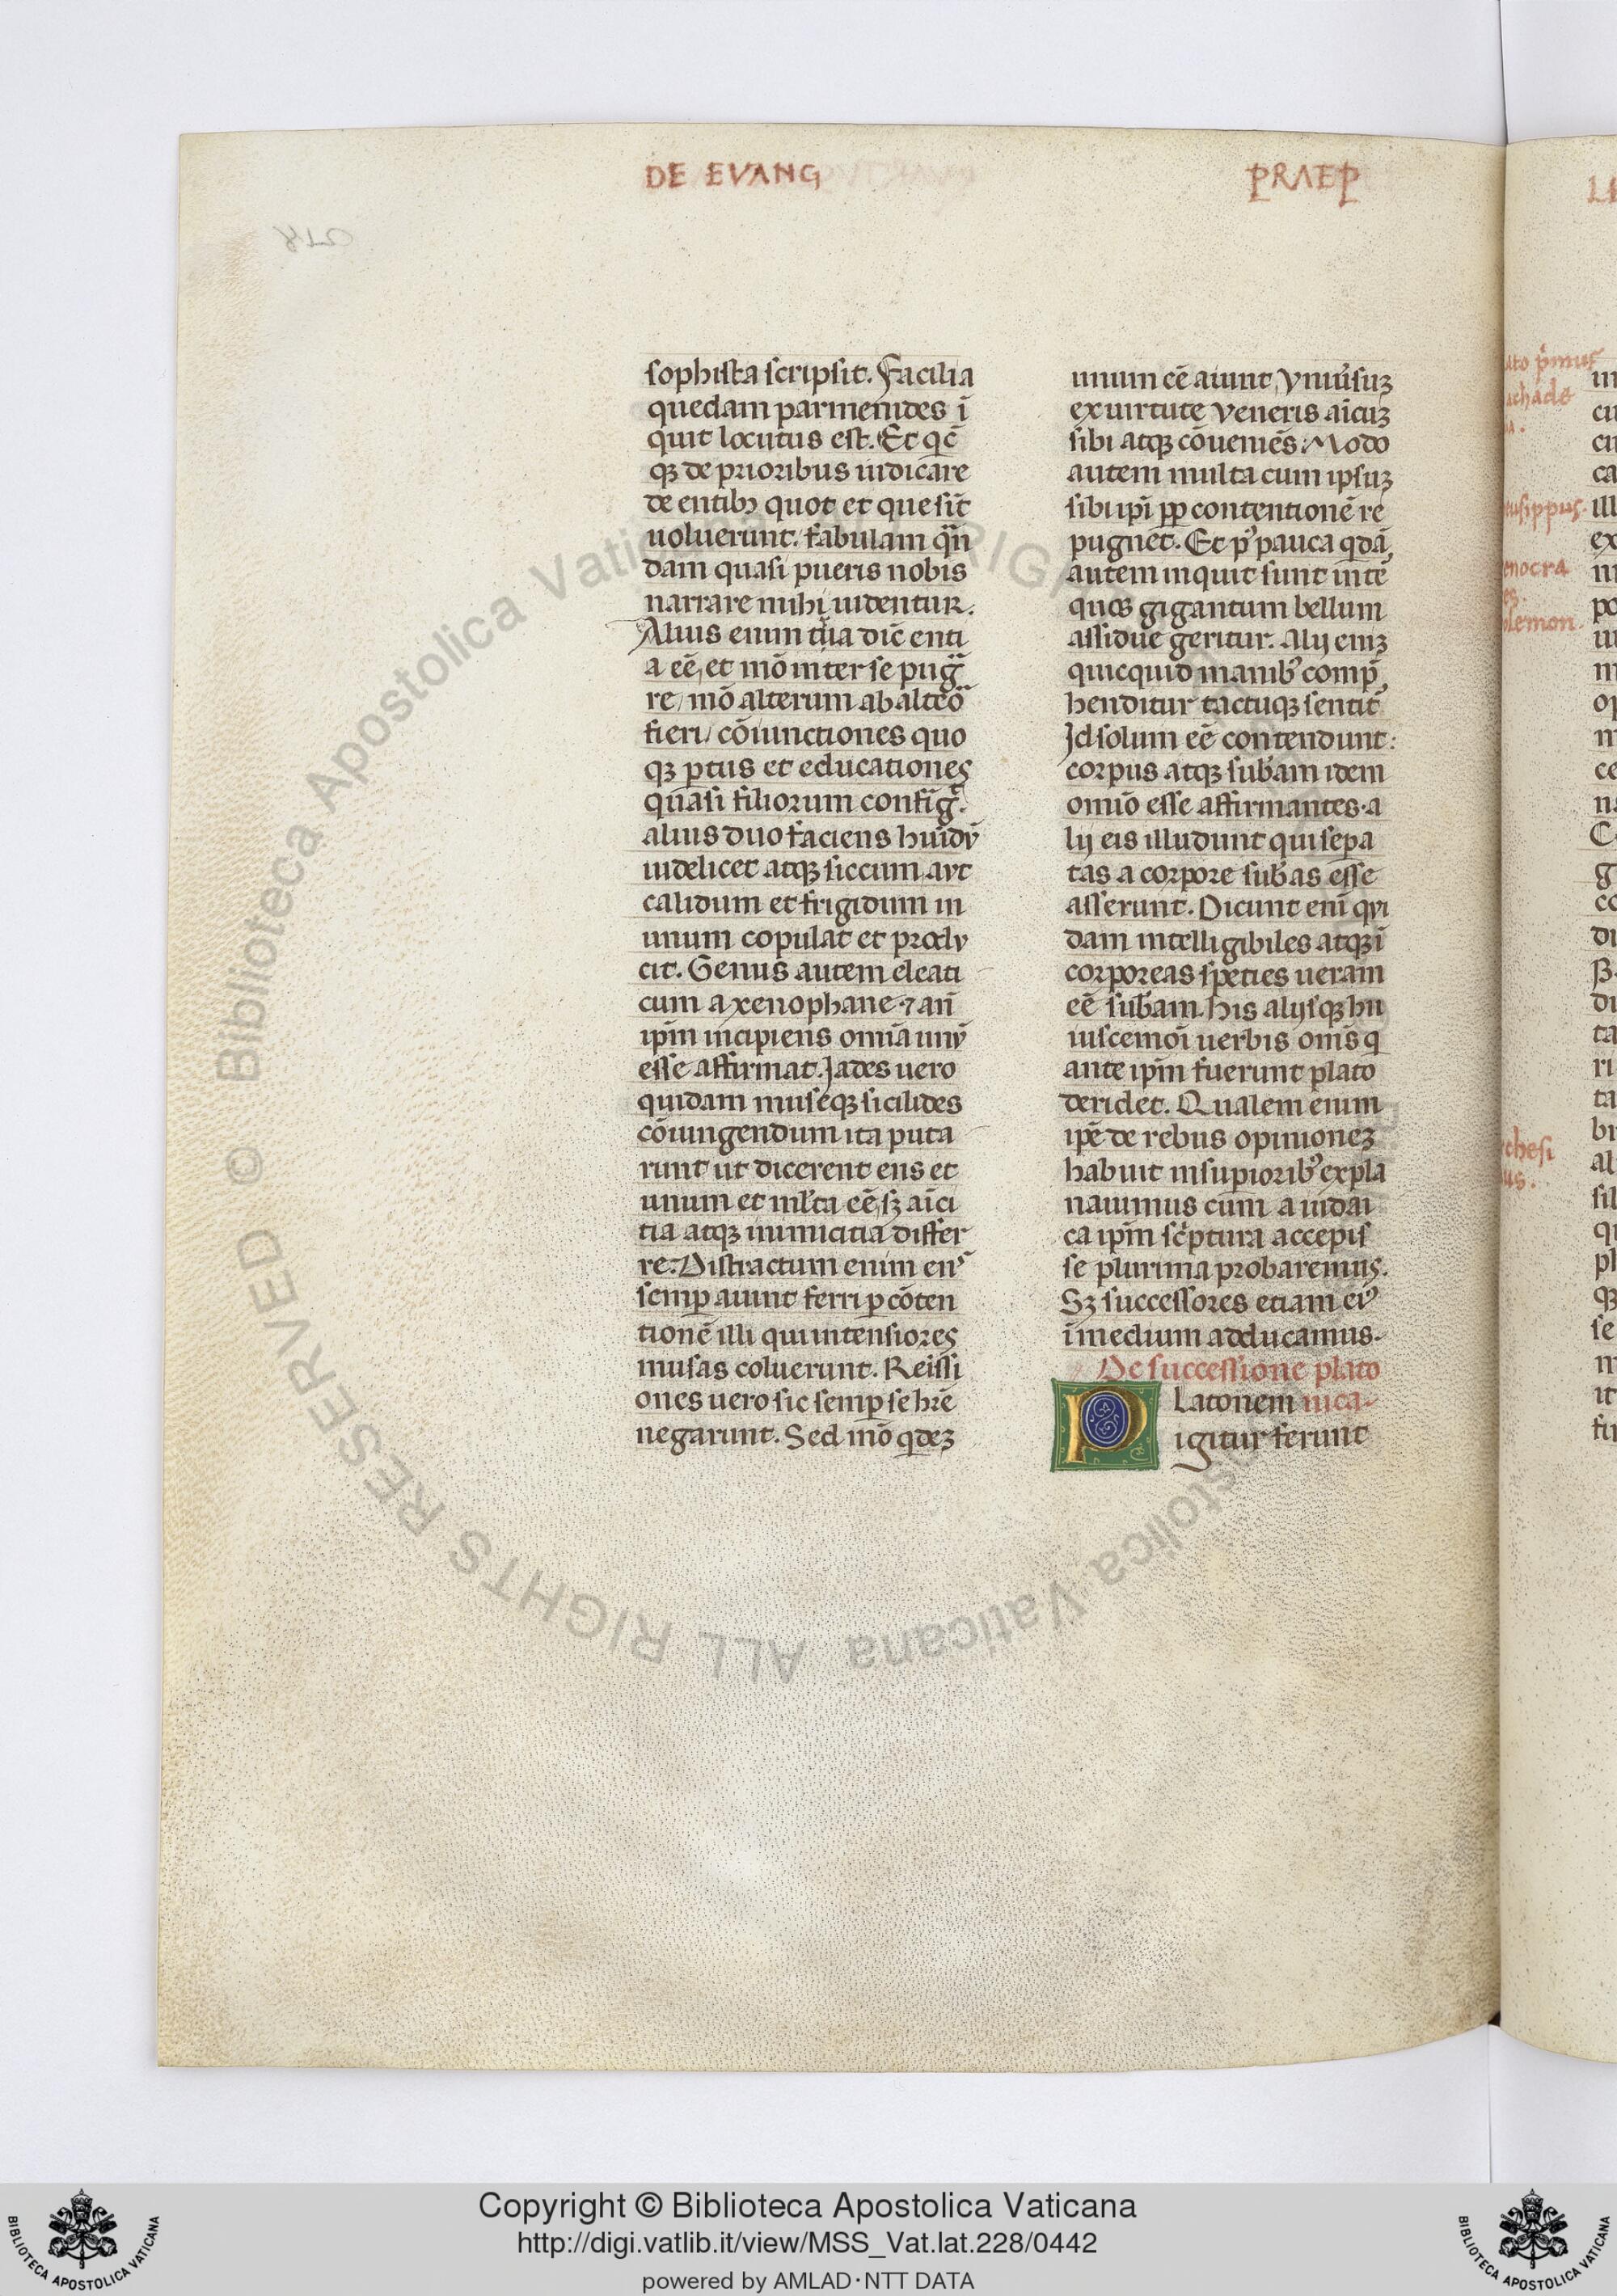 DE EVANG PRAEP
sophista scripsit. Facilia
quedam parmenides ī
quit locutus est. Et qc̄
qꝫ de prioribus iudicare
de entibꝫ quot et que sīt
uoluerunt. fabulam qn̄
dam quasi pueris nobis
narrare mihi uidentur.
Alius enim tria dic̄ enti
a eē, et mō inter se pugª
re, mō alterum ab alteō
fieri, cōiunctiones quo
qꝫ ꝑtus et educationes
quasi filiorum confīgª.
alius duo faciens hūidū
uidelicet atqꝫ siccum aut
calidum et frigidum in
unum copulat et produ
cit. Genus autem eleati
cum a xenophane ⁊ an̄
ipm̄ incipiens omīa unū
esse affirmat. Iades uero
quidam museqꝫ sicilides
cōiungendum ita puta
runt ut dicerent ens et
unum et ml̄ta eē, sꝫ aīci
tia atqꝫ inimicitia differ
re. Distractum enim ens
semꝑ aiunt ferri ꝑ cōten
tionē illi qui intensiores
musas coluerunt. Reīssi
ones uero sic semꝑ se hr̄e
negarunt. Sed mō qdeꝫ
unum eē aiunt, vniūsuꝫ
ex uirtute veneris aīcuꝫ
sibi atqꝫ cōueniēs: Modo
autem multa cum ipsuꝫ
sibi ipī ꝓp contentionē re
pugnet. Et pꝰ pauca qdā
autem inquit sunt inte
quos gigantum bellum
assidue geritur. Alij eniꝫ
quicquid manibꝰ comp̄
henditur tactuqꝫ sentit̄
Id solum eē contendunt:
corpus atqꝫ sub̄am idem
omīo esse affirmantes. a
lij eis illudunt qui seꝑa
tas a corpore sub̄as esse
asserunt. Dicunt enī qui
dam intelligibiles atqꝫ ī
corporeas speties ueram
eē sub̄am. his alijsqꝫ hu
iuscemōi uerbis om̄s q
ante ipm̄ fuerunt plato
deridet. Qualem enim
ipē de rebus opinioneꝫ
habuit in suꝑioribꝰ expla
nauimus cum a iudai
ca ipm̄ sc̄ptura accepis
se plurima probaremus.
Sꝫ successores etiam eiꝰ
ī medium adducamus.
De successione plato
nica
Platonem
igitur ferunt
Copyright © Biblioteca Apostolica Vaticana
http://digi.vatlib.it/view/MSS_Vat.lat.228/0442
powered by AMLAD·NTT DATA
BIBLIOTECA APOSTOLICA VATICANA
BIBLIOTECA APOSTOLICA VATICANA
© Biblioteca Apostolica Vaticana ALL RIGHTS RESERVED